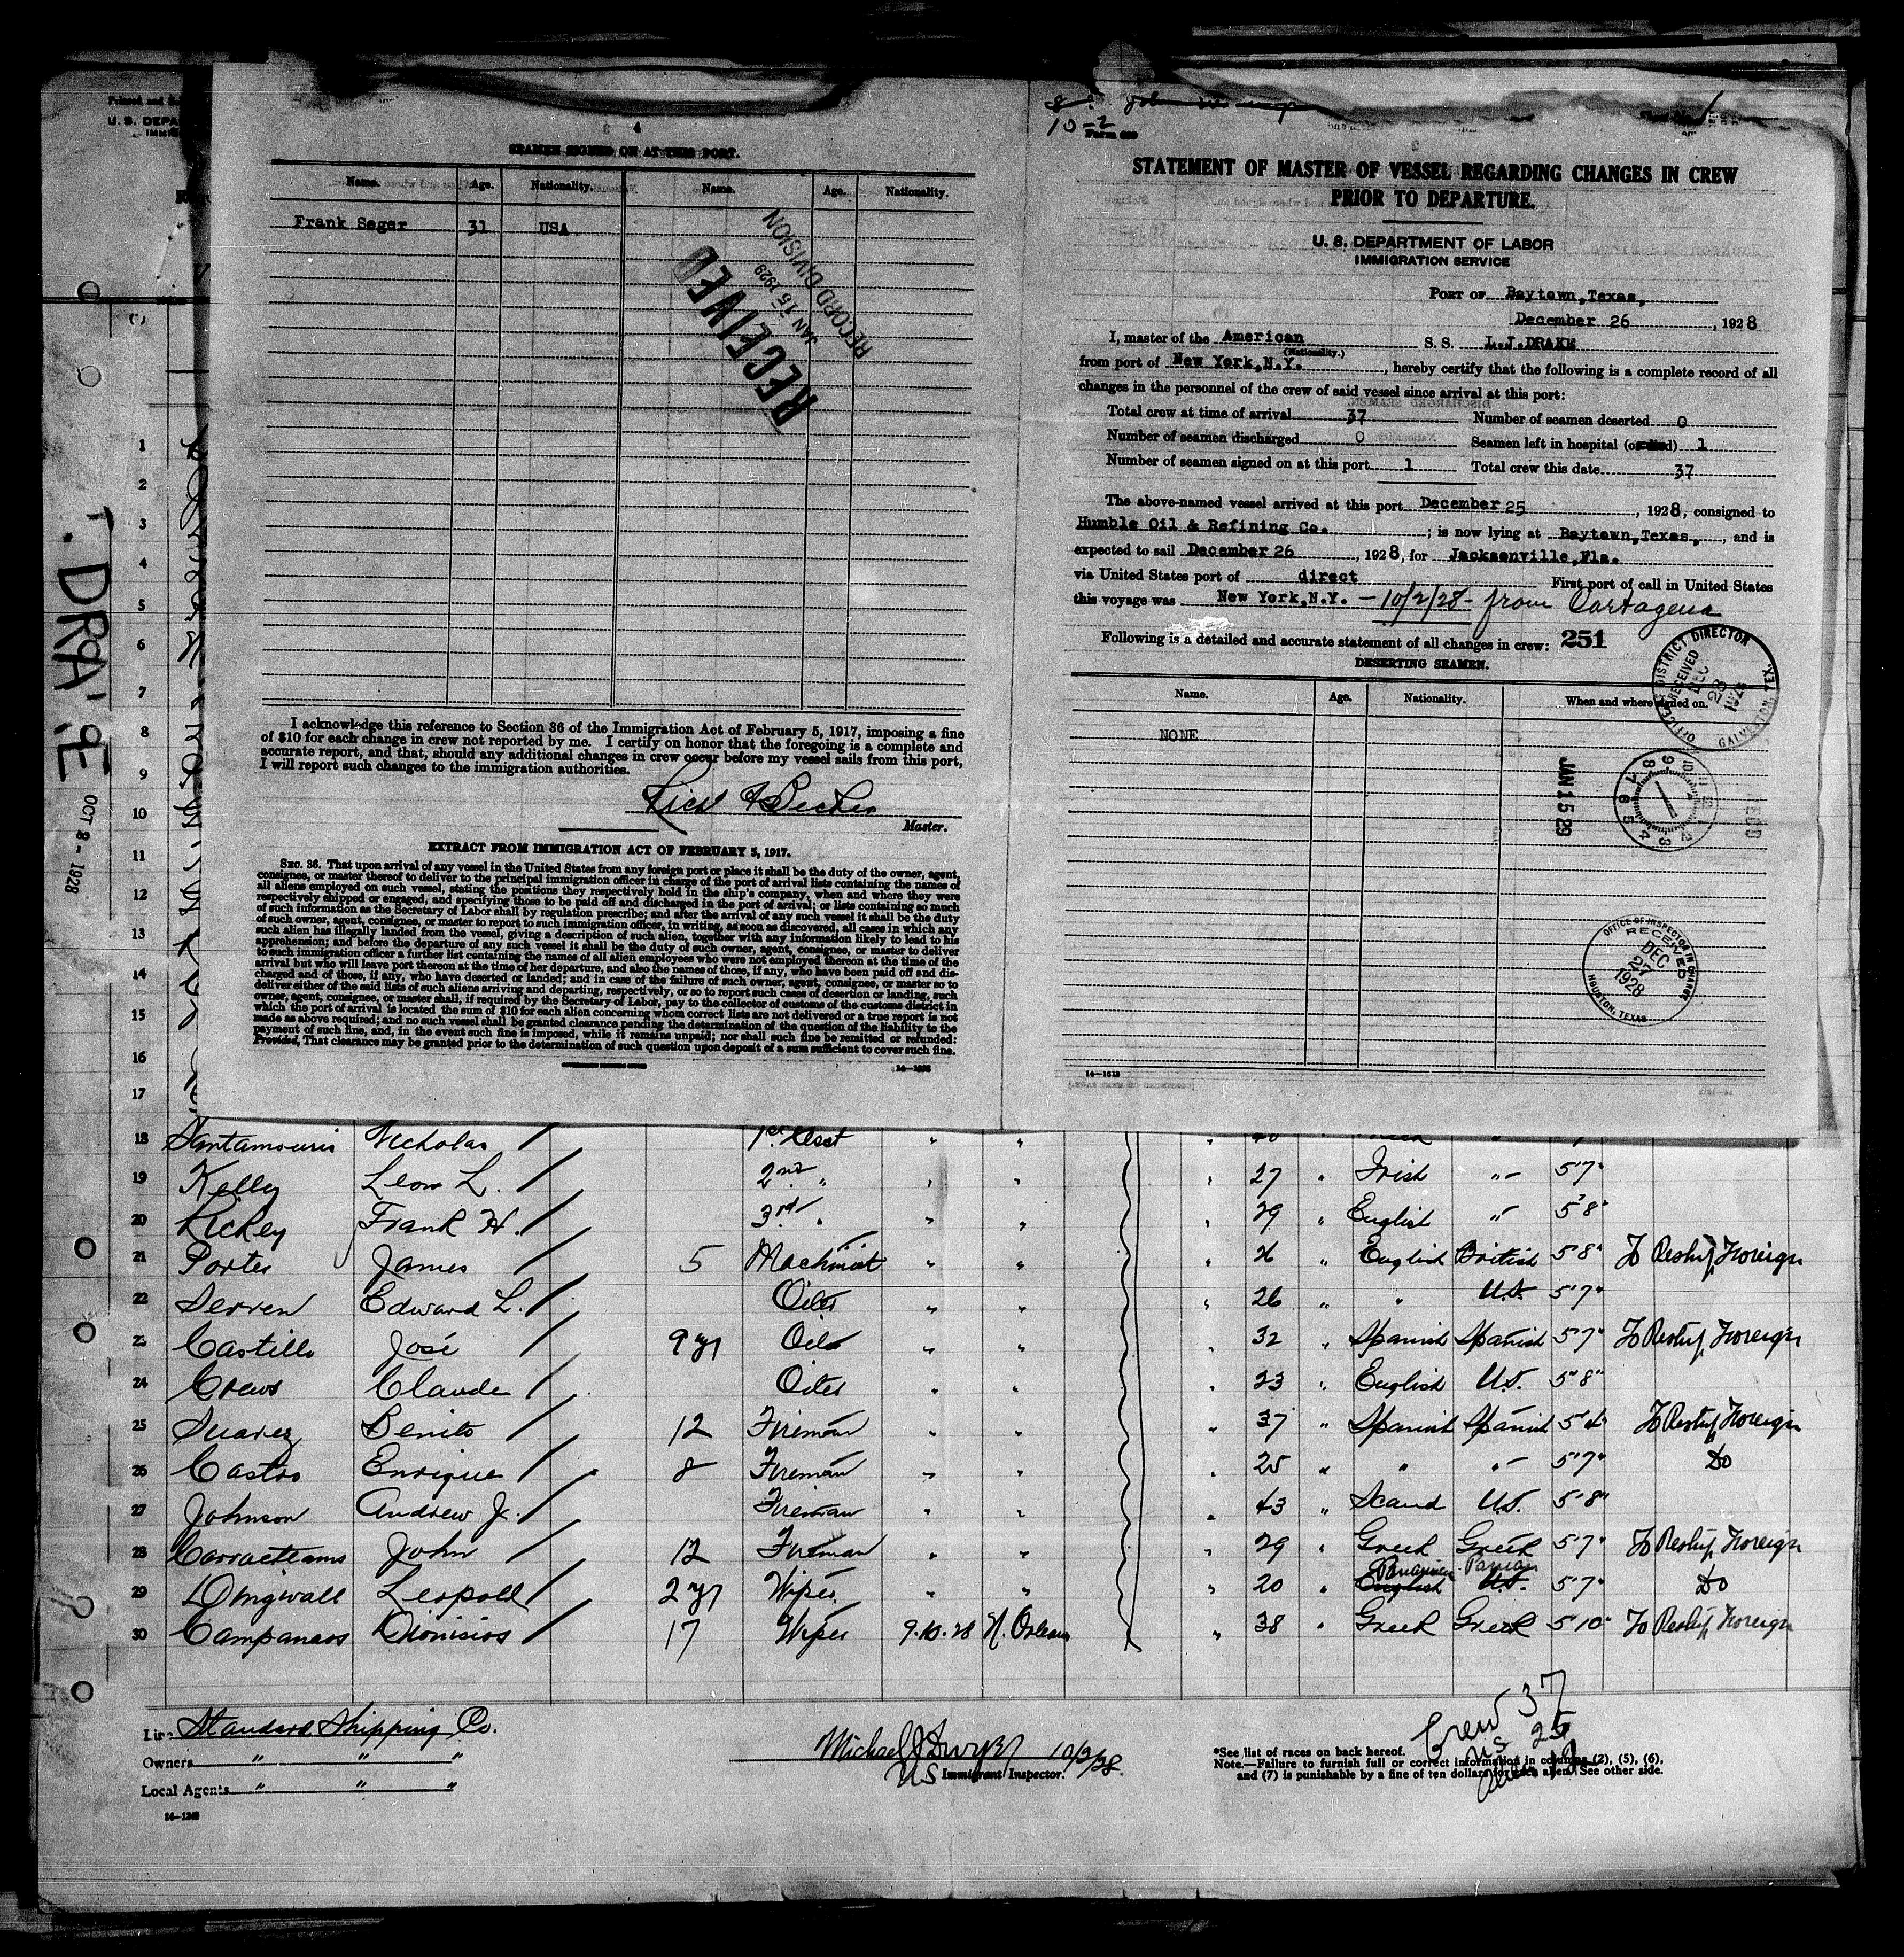 U. S. DEPA
4
SEAMEN SIGNED ON AT THIS PORT.
Name. Age. Nationality. Name. Age. Nationality.
Frank Seger 31 USA
RECEIVED
JAN 15 1929
RECORD DIVISION
I acknowledge this reference to Section 36 of the Immigration Act of February 5, 1917, imposing a fine
of $10 for each change in crew not reported by me. I certify on honor that the foregoing is a complete and
accurate report, and that, should any additional changes in crew occur before my vessel sails from this port,
I will report such changes to the immigration authorities.
Master.
EXTRACT FROM IMMIGRATION ACT OF FEBRUARY 5, 1917.
SEC. 36. That upon arrival of any vessel in the United States from any foreign port or place it shall be the duty of the owner, agent,
consignee, or master thereof to deliver to the principal immigration officer in charge of the port of arrival lists containing the names of
all aliens employed on such vessel, stating the positions they respectively hold in the ship's company, when and where they were
respectively shipped or engaged, and specifying those to be paid off and discharged in the port of arrival; or lists containing so much
of such information as the Secretary of Labor shall by regulation prescribe; and after the arrival of any such vessel it shall be the duty
of such owner, agent, consignee, or master to report to such immigration officer, in writing, as soon as discovered, all cases in which any
such alien has illegally landed from the vessel, giving a description of such alien, together with any information likely to lead to his
apprehension; and before the departure of any such vessel it shall be the duty of such owner, agent, consignee, or master to deliver
to such immigration officer a further list containing the names of all alien employees who were not employed thereon at the time of the
arrival but who will leave port thereon at the time of her departure, and also the names of those, if any, who have been paid off and dis-
charged and of those, if any, who have deserted or landed; and in case of the failure of such owner, agent, consignee, or master so to
deliver either of the said lists of such aliens arriving and departing, respectively, or so to report such cases of desertion or landing, such
owner, agent, consignee, or master shall, if required by the Secretary of Labor, pay to the collector of customs of the customs district in
which the port of arrival is located the sum of $10 for each alien concerning whom correct lists are not delivered or a true report is not
made as above required; and no such vessel shall be granted clearance pending the determination of the question of the liability to the
payment of such fine, and, in the event such fine is imposed, while it remains unpaid; nor shall such fine be remitted or refunded:
Provided, That clearance may be granted prior to the determination of such question upon deposit of a sum sufficient to cover such fine.
10-2
STATEMENT OF MASTER OF VESSEL REGARDING CHANGES IN CREW
PRIOR TO DEPARTURE.
U. S. DEPARTMENT OF LABOR
IMMIGRATION SERVICE
PORT OF Baytown,Texas,
December 26, 1928
I, master of the American S. S. L.J.DRAKE
(Nationality.)
from port of New York,N.Y., hereby certify that the following is a complete record of all
changes in the personnel of the crew of said vessel since arrival at this port:
Total crew at time of arrival 37 Number of seamen deserted 0
Number of seamen discharged 0 Seamen left in hospital (or died) 1
Number of seamen signed on at this port 1 Total crew this date 37
The above-named vessel arrived at this port December 25, 1928, consigned to
Humble Oil & Refining Co.; is now lying at Baytown,Texas,, and is
expected to sail December 26, 1928, for Jacksonville,Fla.
via United States port of direct First port of call in United States
this voyage was New York,N.Y. - 10/2/28 - from Cartagena
Following is a detailed and accurate statement of all changes in crew: 251
DESERTING SEAMEN.
Name. Age. Nationality. When and where signed on.
NONE
OFFICE DISTRICT DIRECTOR RECEIVED DEC 28 1928 GALVESTON, TEX.
JAN 15 29
OFFICE OF INSPECTOR IN CHARGE RECEIVED DEC 27 1928 HOUSTON, TEXAS
14—1613
DRAKE
OCT 2 - 1928
1
2
3
4
5
6
7
8
9
10
11
12
13
14
15
16
17
18 Santamouris Nicholas 1st Asst
19 Kelly Leon L. 2nd " 27 " Irish "- 5'7"
20 Rickey Frank H. 3rd " 29 " English " 5'8"
21 Porter James 5 Machinist 26 " English British 5'8" To Reship Foreign
22 Serren Edward L. Oiler 26 " " U.S. 5'7"
23 Castillo José 9 yr Oiler 32 " Spanish Spanish 5'7" To Reship Foreign
24 Crews Claude Oiler 23 " English U.S. 5'8"
25 Suarez Benito 12 Fireman 37 " Spanish Spanish 5'4" To Reship Foreign
26 Castro Enrique 8 Fireman 25 " " "- 5'7" Do
27 Johnson Andrew J. Fireman 43 " Scand U.S. 5'8"
28 John 12 Fireman 29 " Greek Greek 5'7" To Reship Foreign
29 Dingwall Leopold 2 yr Wiper 20 " English U.S. 5'7" Do
30 Campanaos Dionisios 17 Wiper 9.10.28 N. Orleans 38 " Greek Greek 5'10" To Reship Foreign
Line Standard Shipping Co.
Owners " " "
Local Agents " " "
14—1240
Michael J Dwyer 10/2/28.
US Immigrant Inspector.
Crew 37
US 25
Alien 12
*See list of races on back hereof.
Note.—Failure to furnish full or correct information in columns (2), (5), (6),
and (7) is punishable by a fine of ten dollars for each alien. See other side.